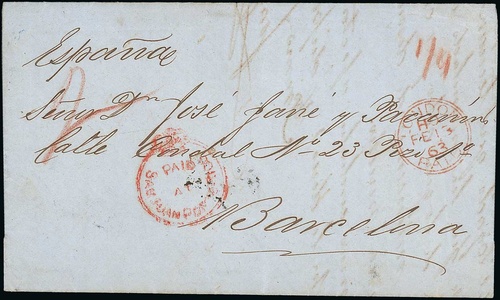 España
1/9
Señor Dn José Jané y
Calle Condal No 23 Piso 1o
Barcelona
PAID
AT
SAN JUAN PORTO RICO
LONDON
FE 13
63
PAID